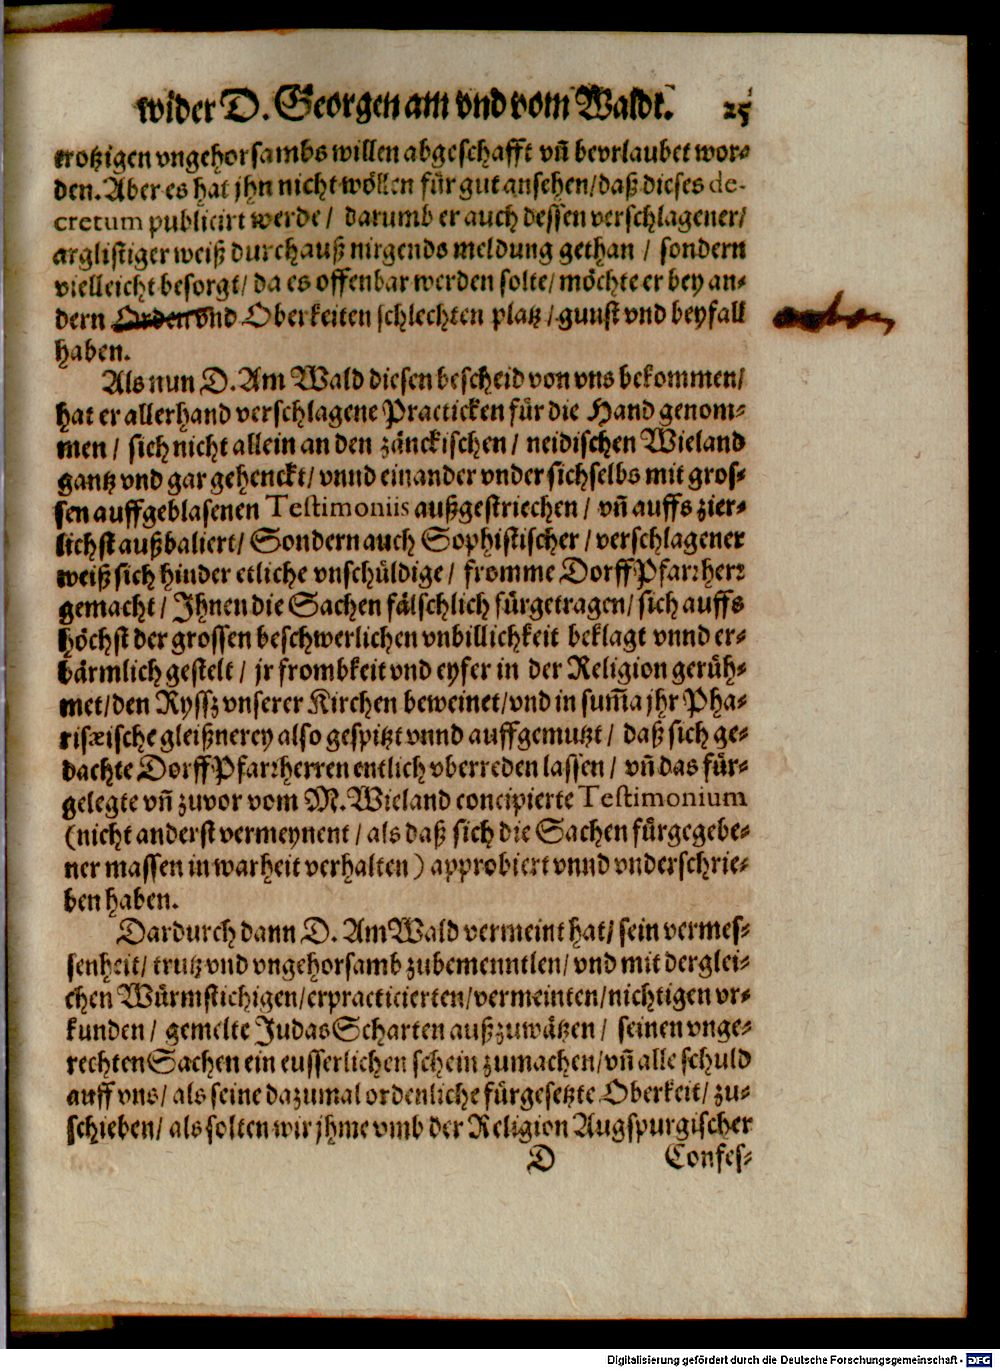 wider D. Georgen am vnd vom Waldt. 25
trotzigen vngehorsambs willen abgeschafft vñ bevrlaubet wor-
den. Aber es hat jhn nicht wöllen für gut ansehen/daß dieses de-
cretum publicirt werde/ darumb er auch dessen verschlagener/
arglistiger weiß durchauß nirgends meldung gethan / sondern
vielleicht besorgt/ da es offenbar werden solte/ möchte er bey an-
dern Orden vnd Oberkeiten schlechten platz/ gunst vnd beyfall
haben.
Als nun D. Am Wald diesen bescheid von vns bekommen/
hat er allerhand verschlagene Practicken für die Hand genom-
men / sich nicht allein an den zänckischen / neidischen Wieland
gantz vnd gar gehenckt/ vnnd einander vnder sichselbs mit gros-
sen auffgeblasenen Testimoniis außgestriechen / vñ auffs zier-
lichst außbaliert/ Sondern auch Sophistischer / verschlagener
weiß sich hinder etliche vnschüldige / fromme DorffPfarrherr
gemacht / Ihnen die Sachen fälschlich fürgetragen/ sich auffs
höchst der grossen beschwerlichen vnbillichkeit beklagt vnnd er-
bärmlich gestelt / jr frombkeit vnd eyfer in der Religion gerüh-
met/den Ryssz vnserer Kirchen beweinet/vnd in sum̃a jhr Pha-
risæische gleißnerey also gespitzt vnnd auffgemutzt / daß sich ge-
dachte DorffPfarrherren entlich vberreden lassen / vñ das für-
gelegte vñ zuvor vom M. Wieland concipierte Testimonium
(nicht anderst vermeynent / als daß sich die Sachen fürgegebe-
ner massen in warheit verhalten) approbiert vnnd vnderschrie-
ben haben.
Dardurch dann D. AmWald vermeint hat/ sein vermes-
senheit/ trutz vnd vngehorsamb zubemenntlen/ vnd mit derglei-
chen Würmstichigen/erpracticierten/vermeinten/nichtigen vr-
kunden/ gemelte JudasScharten außzuwätzen/ seinen vnge-
rechten Sachen ein eusserlichen schein zumachen/vñ alle schuld
auff vns/ als seine dazumal ordenliche fürgesetzte Oberkeit/ zu-
schieben/ als solten wir jhme vmb der Religion Augspurgischer
D Confes-
Digitalisierung gefördert durch die Deutsche Forschungsgemeinschaft - DFG